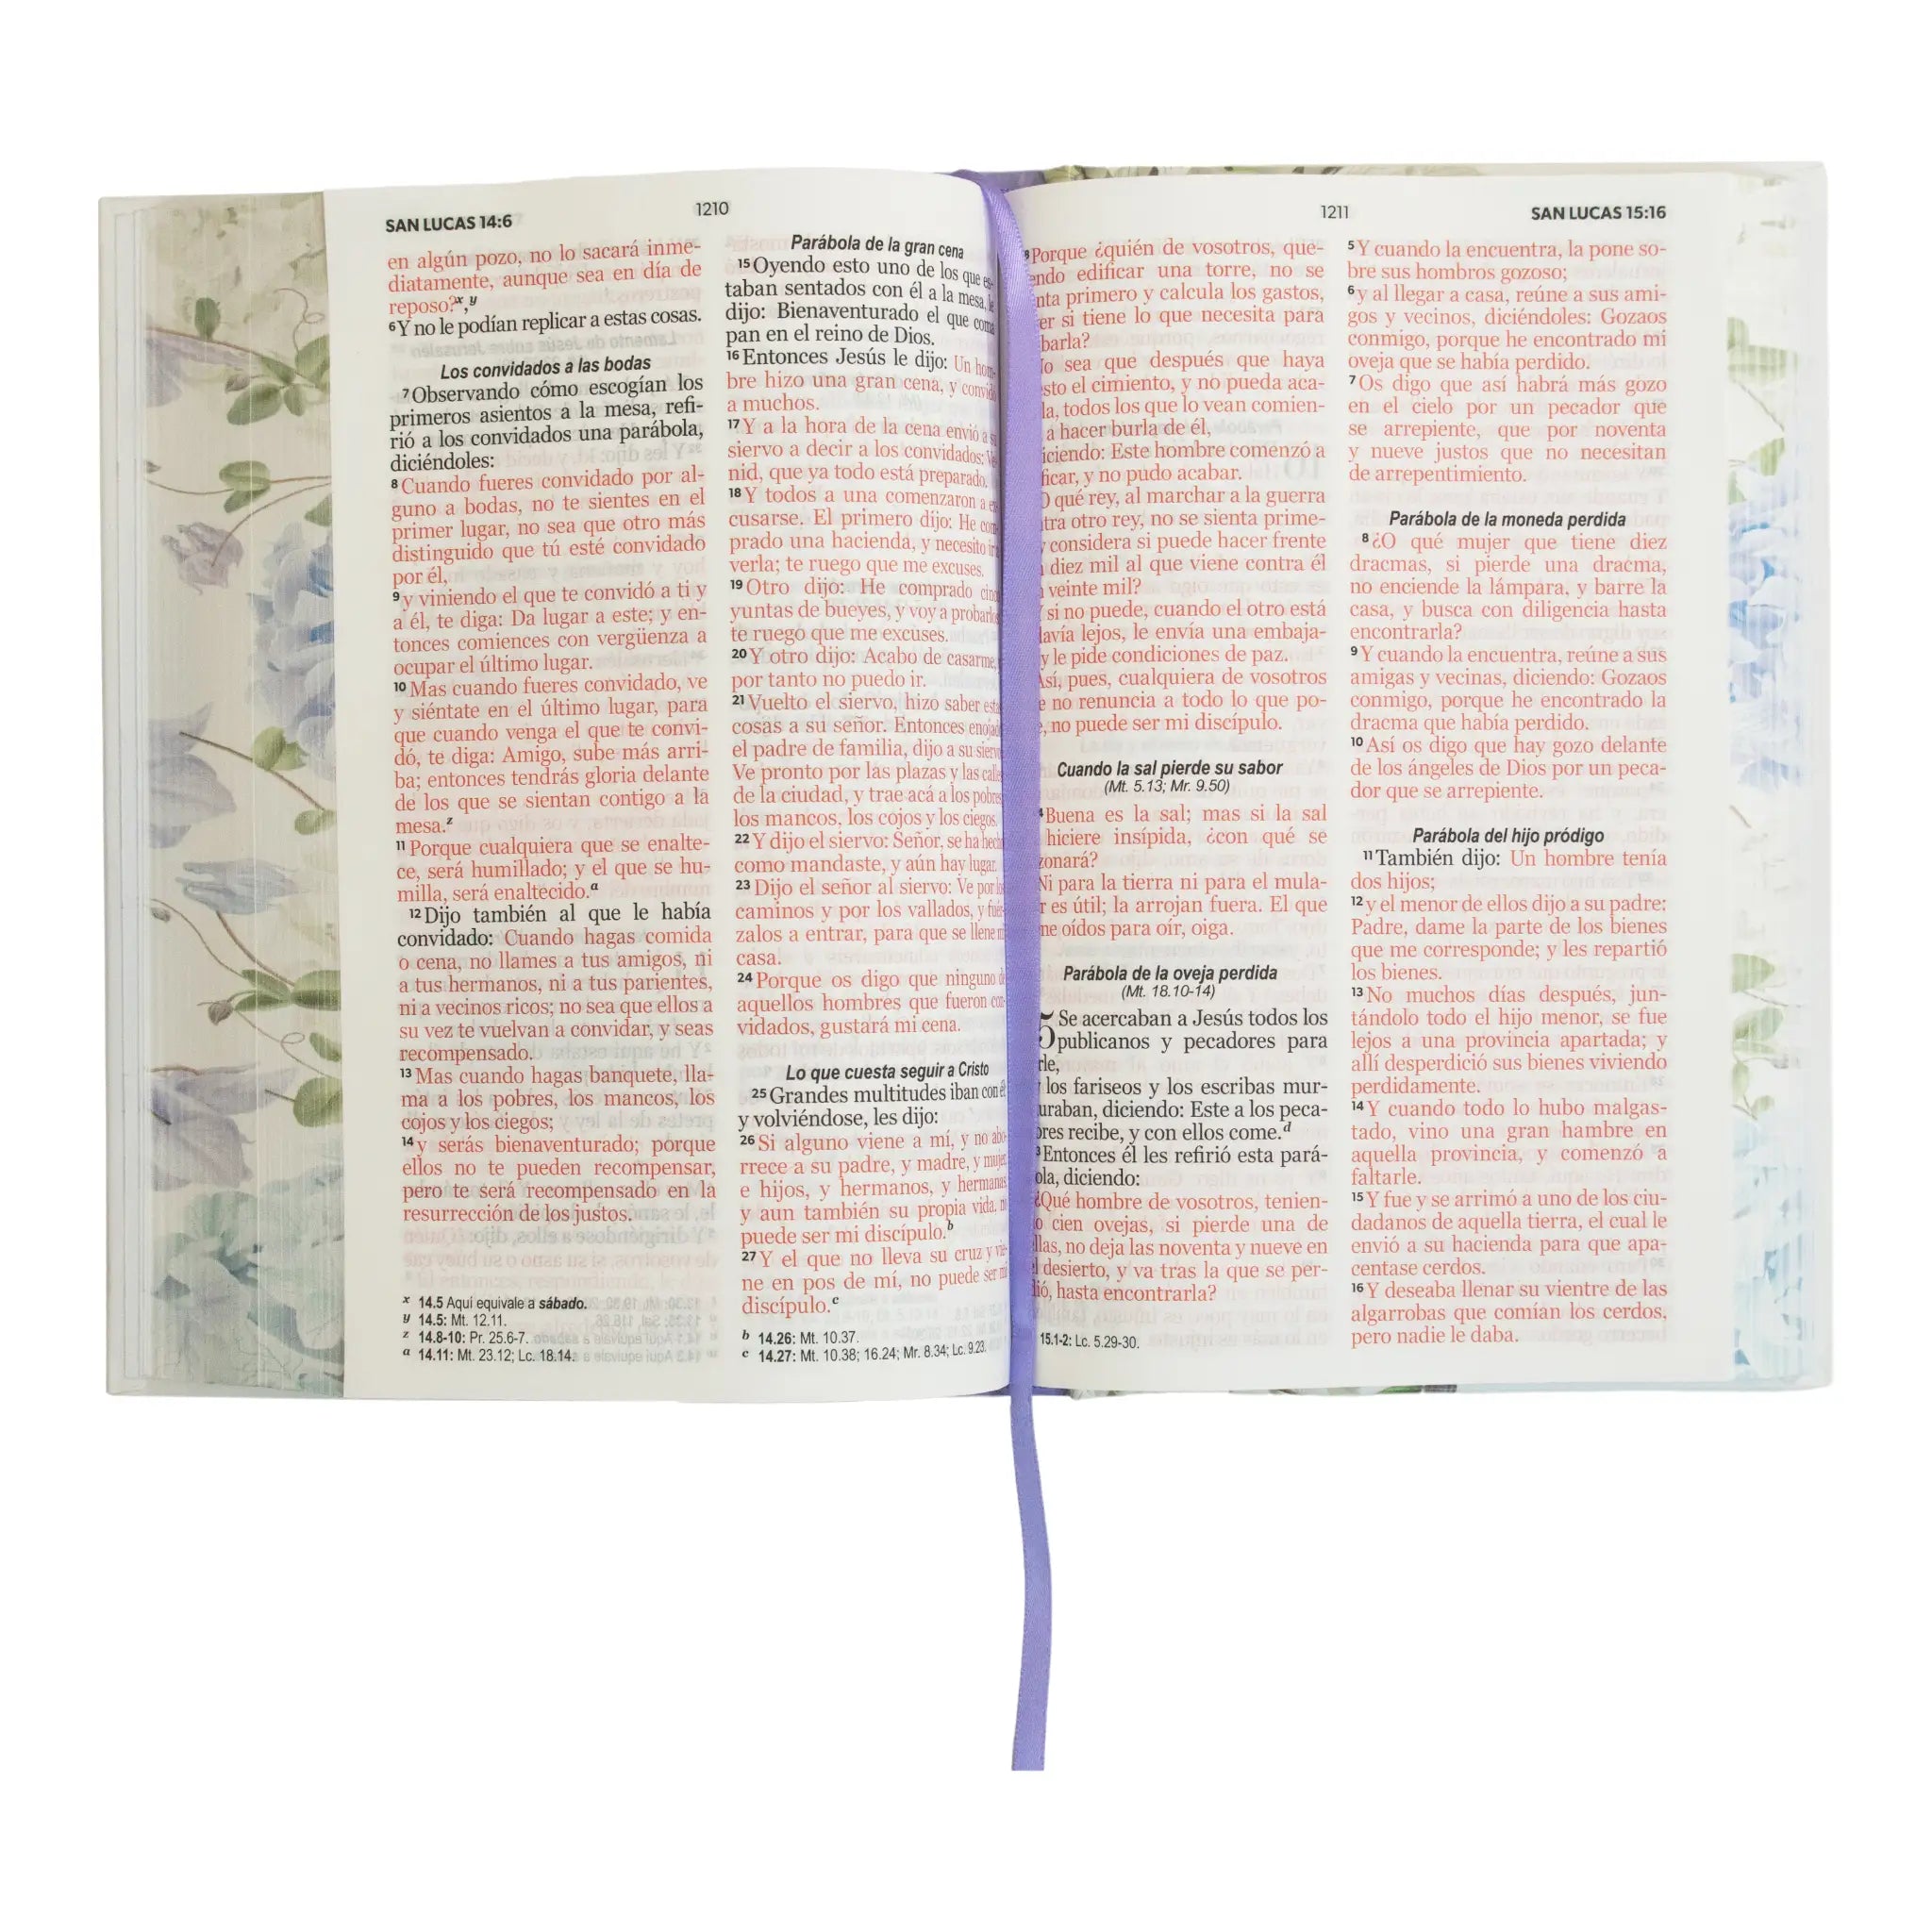 SAN LUCAS 14:6
1210
en algún pozo, no lo sacará inme-
diatamente, aunque sea en día de
reposo?x,y
6Y no le podían replicar a estas cosas.
Los convidados a las bodas
7Observando cómo escogían los
primeros asientos a la mesa, refi-
rió a los convidados una parábola,
diciéndoles:
8Cuando fueres convidado por al-
guno a bodas, no te sientes en el
primer lugar, no sea que otro más
distinguido que tú esté convidado
por él,
9y viniendo el que te convidó a ti y
a él, te diga: Da lugar a este; y en-
tonces comiences con vergüenza a
ocupar el último lugar.
10Mas cuando fueres convidado, ve
y siéntate en el último lugar, para
que cuando venga el que te convi-
dó, te diga: Amigo, sube más arri-
ba; entonces tendrás gloria delante
de los que se sientan contigo a la
mesa.z
11Porque cualquiera que se enalte-
ce, será humillado; y el que se hu-
milla, será enaltecido.a
12Dijo también al que le había
convidado: Cuando hagas comida
o cena, no llames a tus amigos, ni
a tus hermanos, ni a tus parientes,
ni a vecinos ricos; no sea que ellos a
su vez te vuelvan a convidar, y seas
recompensado.
13Mas cuando hagas banquete, lla-
ma a los pobres, los mancos, los
cojos y los ciegos;
14y serás bienaventurado; porque
ellos no te pueden recompensar,
pero te será recompensado en la
resurrección de los justos.
x 14.5 Aquí equivale a sábado.
y 14.5: Mt. 12.11.
z 14.8-10: Pr. 25.6-7.
a 14.11: Mt. 23.12; Lc. 18.14.
Parábola de la gran cena
15Oyendo esto uno de los que es-
taban sentados con él a la mesa, le
dijo: Bienaventurado el que coma
pan en el reino de Dios.
16Entonces Jesús le dijo: Un hom-
bre hizo una gran cena, y convidó
a muchos.
17Y a la hora de la cena envió a su
siervo a decir a los convidados: Ve-
nid, que ya todo está preparado.
18Y todos a una comenzaron a ex-
cusarse. El primero dijo: He com-
prado una hacienda, y necesito ir a
verla; te ruego que me excuses.
19Otro dijo: He comprado cinco
yuntas de bueyes, y voy a probarlos
te ruego que me excuses.
20Y otro dijo: Acabo de casarme,
por tanto no puedo ir.
21Vuelto el siervo, hizo saber estas
cosas a su señor. Entonces enojado
el padre de familia, dijo a su siervo
Ve pronto por las plazas y las calles
de la ciudad, y trae acá a los pobres
los mancos, los cojos y los ciegos.
22Y dijo el siervo: Señor, se ha hecho
como mandaste, y aún hay lugar.
23Dijo el señor al siervo: Ve por los
caminos y por los vallados, y fuér-
zalos a entrar, para que se llene mi
casa.
24Porque os digo que ninguno de
aquellos hombres que fueron con-
vidados, gustará mi cena.
Lo que cuesta seguir a Cristo
25Grandes multitudes iban con él
y volviéndose, les dijo:
26Si alguno viene a mí, y no abo-
rrece a su padre, y madre, y mujer
e hijos, y hermanos, y hermanas
y aun también su propia vida, no
puede ser mi discípulo.b
27Y el que no lleva su cruz y vie-
ne en pos de mí, no puede ser mi
discípulo.c
b 14.26: Mt. 10.37.
c 14.27: Mt. 10.38; 16.24; Mr. 8.34; Lc. 9.23.
1211
SAN LUCAS 15:16
8Porque ¿quién de vosotros, que-
endo edificar una torre, no se
nta primero y calcula los gastos,
er si tiene lo que necesita para
barla?
o sea que después que haya
sto el cimiento, y no pueda aca-
la, todos los que lo vean comien-
a hacer burla de él,
iciendo: Este hombre comenzó a
ficar, y no pudo acabar.
O qué rey, al marchar a la guerra
tra otro rey, no se sienta prime-
y considera si puede hacer frente
diez mil al que viene contra él
veinte mil?
si no puede, cuando el otro está
lavía lejos, le envía una embaja-
y le pide condiciones de paz.
Así, pues, cualquiera de vosotros
e no renuncia a todo lo que po-
, no puede ser mi discípulo.
Cuando la sal pierde su sabor
(Mt. 5.13; Mr. 9.50)
4Buena es la sal; mas si la sal
hiciere insípida, ¿con qué se
zonará?
Ni para la tierra ni para el mula-
r es útil; la arrojan fuera. El que
ne oídos para oír, oiga.
Parábola de la oveja perdida
(Mt. 18.10-14)
5 Se acercaban a Jesús todos los
publicanos y pecadores para
rle,
los fariseos y los escribas mur-
uraban, diciendo: Este a los peca-
ores recibe, y con ellos come.d
3Entonces él les refirió esta pará-
ola, diciendo:
¿Qué hombre de vosotros, tenien-
o cien ovejas, si pierde una de
llas, no deja las noventa y nueve en
l desierto, y va tras la que se per-
dió, hasta encontrarla?
15.1-2: Lc. 5.29-30.
5Y cuando la encuentra, la pone so-
bre sus hombros gozoso;
6y al llegar a casa, reúne a sus ami-
gos y vecinos, diciéndoles: Gozaos
conmigo, porque he encontrado mi
oveja que se había perdido.
7Os digo que así habrá más gozo
en el cielo por un pecador que
se arrepiente, que por noventa
y nueve justos que no necesitan
de arrepentimiento.
Parábola de la moneda perdida
8¿O qué mujer que tiene diez
dracmas, si pierde una dracma,
no enciende la lámpara, y barre la
casa, y busca con diligencia hasta
encontrarla?
9Y cuando la encuentra, reúne a sus
amigas y vecinas, diciendo: Gozaos
conmigo, porque he encontrado la
dracma que había perdido.
10Así os digo que hay gozo delante
de los ángeles de Dios por un peca-
dor que se arrepiente.
Parábola del hijo pródigo
11También dijo: Un hombre tenía
dos hijos;
12y el menor de ellos dijo a su padre:
Padre, dame la parte de los bienes
que me corresponde; y les repartió
los bienes.
13No muchos días después, jun-
tándolo todo el hijo menor, se fue
lejos a una provincia apartada; y
allí desperdició sus bienes viviendo
perdidamente.
14Y cuando todo lo hubo malgas-
tado, vino una gran hambre en
aquella provincia, y comenzó a
faltarle.
15Y fue y se arrimó a uno de los ciu-
dadanos de aquella tierra, el cual le
envió a su hacienda para que apa-
centase cerdos.
16Y deseaba llenar su vientre de las
algarrobas que comían los cerdos,
pero nadie le daba.